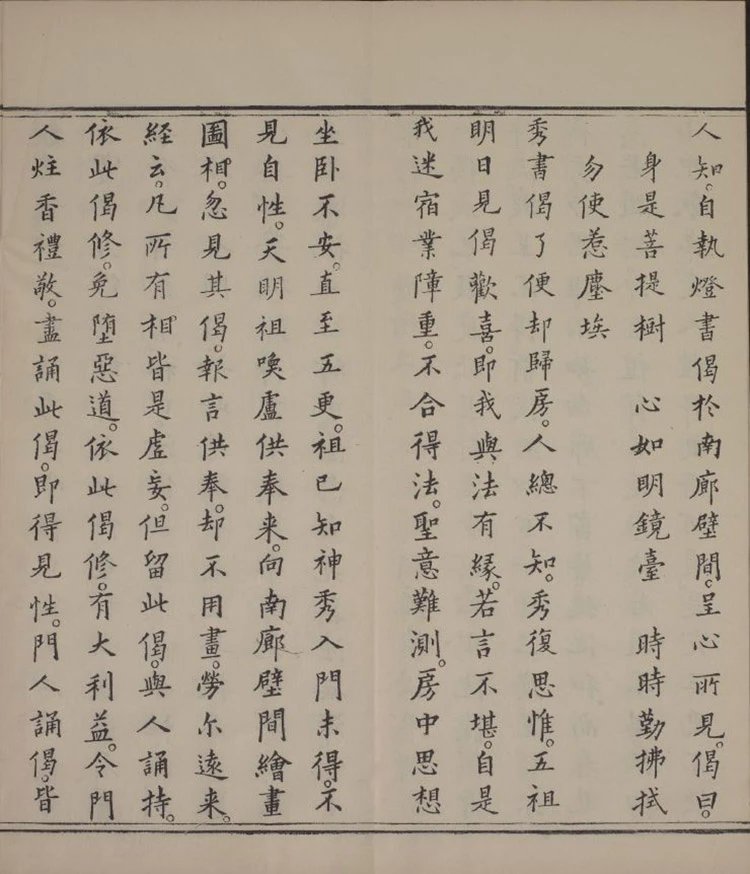 人知。自執燈書偈於南廊壁間。呈心所見。偈曰。
身是菩提樹　心如明鏡臺　時時勤拂拭
勿使惹塵埃
秀書偈了便却歸房。人總不知。秀復思惟。五祖
明日見偈歡喜。即我與法有緣。若言不堪。自是
我迷宿業障重。不合得法。聖意難測。房中思想
坐卧不安。直至五更。祖已知神秀入門未得。不
見自性。天明祖喚盧供奉来。向南廊壁間繪畫
圖相。忽見其偈。報言供奉。却不用畫。勞尔遠来。
経云。凡所有相皆是虛妄。但留此偈。與人誦持。
依此偈修。免堕惡道。依此偈修。有大利益。令門
人炷香禮敬。盡誦此偈。即得見性。門人誦偈。皆